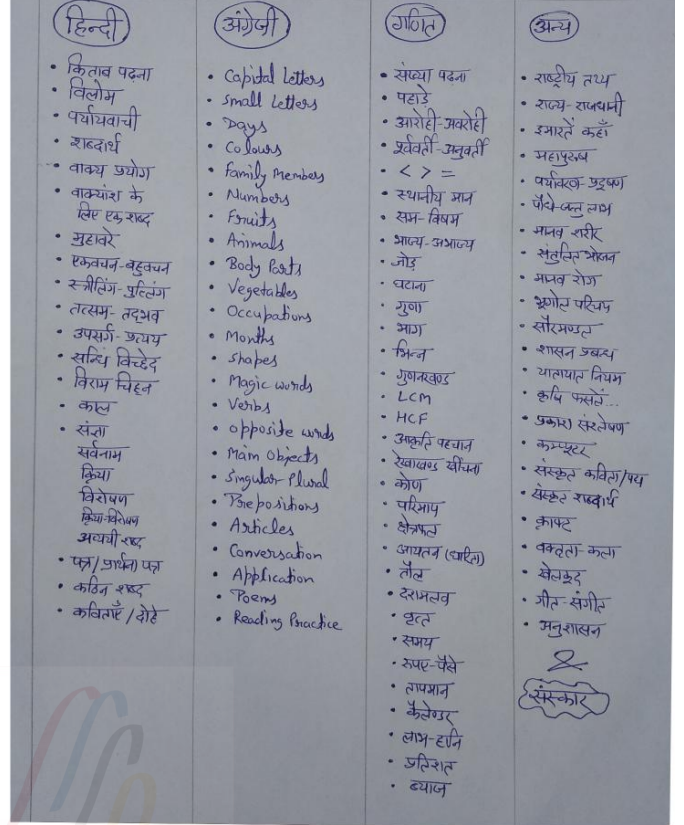 हिन्दी
• किताब पढ़ना
• विलोम
• पर्यायवाची
• शब्दार्थ
• वाक्य प्रयोग
• वाक्यांश के
लिए एक शब्द
• मुहावरे
• एकवचन-बहुवचन
• स्त्रीलिंग-पुल्लिंग
• तत्सम-तदभव
• उपसर्ग-प्रत्यय
• सन्धि विच्छेद
• विराम चिह्न
• काल
• संज्ञा
सर्वनाम
क्रिया
विशेषण
क्रिया-विशेषण
अव्ययी शब्द
• पत्र/प्रार्थना पत्र
• कठिन शब्द
• कविताएँ/दोहे
अंग्रेजी
• Capital Letters
• Small Letters
• Days
• Colours
• Family Members
• Numbers
• Fruits
• Animals
• Body Parts
• Vegetables
• Occupations
• Months
• Shapes
• Magic words
• Verbs
• opposite words
• Main Objects
• Singular-Plural
• Prepositions
• Articles
• Conversation
• Application
• Poems
• Reading Practice
गणित
• संख्या पढ़ना
• पहाड़े
• आरोही-अवरोही
• पूर्ववर्ती-अनुवर्ती
• < > =
• स्थानीय मान
• सम-विषम
• भाज्य-अभाज्य
• जोड़
• घटाना
• गुणा
• भाग
• भिन्न
• गुणनखण्ड
• LCM
• HCF
• आकृति पहचान
• रेखाखण्ड खींचना
• कोण
• परिमाप
• क्षेत्रफल
• आयतन (धारिता)
• तौल
• दशमलव
• वृत्त
• समय
• रुपए-पैसे
• तापमान
• कैलेण्डर
• लाभ-हानि
• प्रतिशत
• ब्याज
अन्य
• राष्ट्रीय तथ्य
• राज्य-राजधानी
• इमारतें कहाँ
• महापुरुष
• पर्यावरण-प्रदूषण
• पौधे-जन्तु लाभ
• मानव शरीर
• संतुलित भोजन
• मानव रोग
• भूगोल परिचय
• सौरमण्डल
• शासन प्रबन्ध
• यातायात नियम
• कृषि फसलें...
• प्रकाश संश्लेषण
• कम्प्यूटर
• संस्कृत कविता/पद्य
• संस्कृत शब्दार्थ
• क्राफ्ट
• वक्तृता-कला
• खेलकूद
• गीत-संगीत
• अनुशासन
&
संस्कार